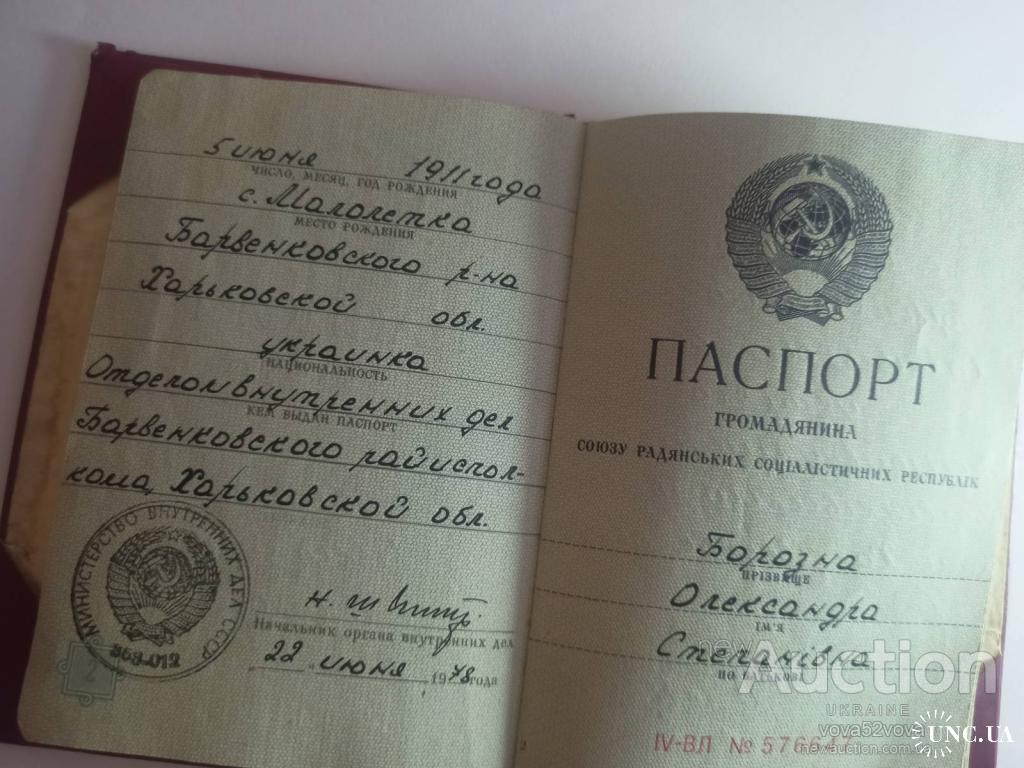 5 июня 1911 года
ЧИСЛО, МЕСЯЦ, ГОД РОЖДЕНИЯ
с. Малолетка
МЕСТО РОЖДЕНИЯ
Барвенковского р-на
Харьковской обл.
украинка
НАЦИОНАЛЬНОСТЬ
Отделом внутренних дел
КЕМ ВЫДАН ПАСПОРТ
Барвенковского райиспол-
кома, Харьковской обл.
МИНИСТЕРСТВО ВНУТРЕННИХ ДЕЛ СССР
363-012
Начальник органа внутренних дел
"22" июня 1978 года
2
ПАСПОРТ
ГРОМАДЯНИНА
СОЮЗУ РАДЯНСЬКИХ СОЦІАЛІСТИЧНИХ РЕСПУБЛІК
Борозна
ПРІЗВИЩЕ
Олександра
ІМ'Я
Степанівна
ПО БАТЬКОВІ
IV-ВЛ № 576647
2
Auction
UKRAINE
vova52vova
newauction.com.ua
UNC.UA